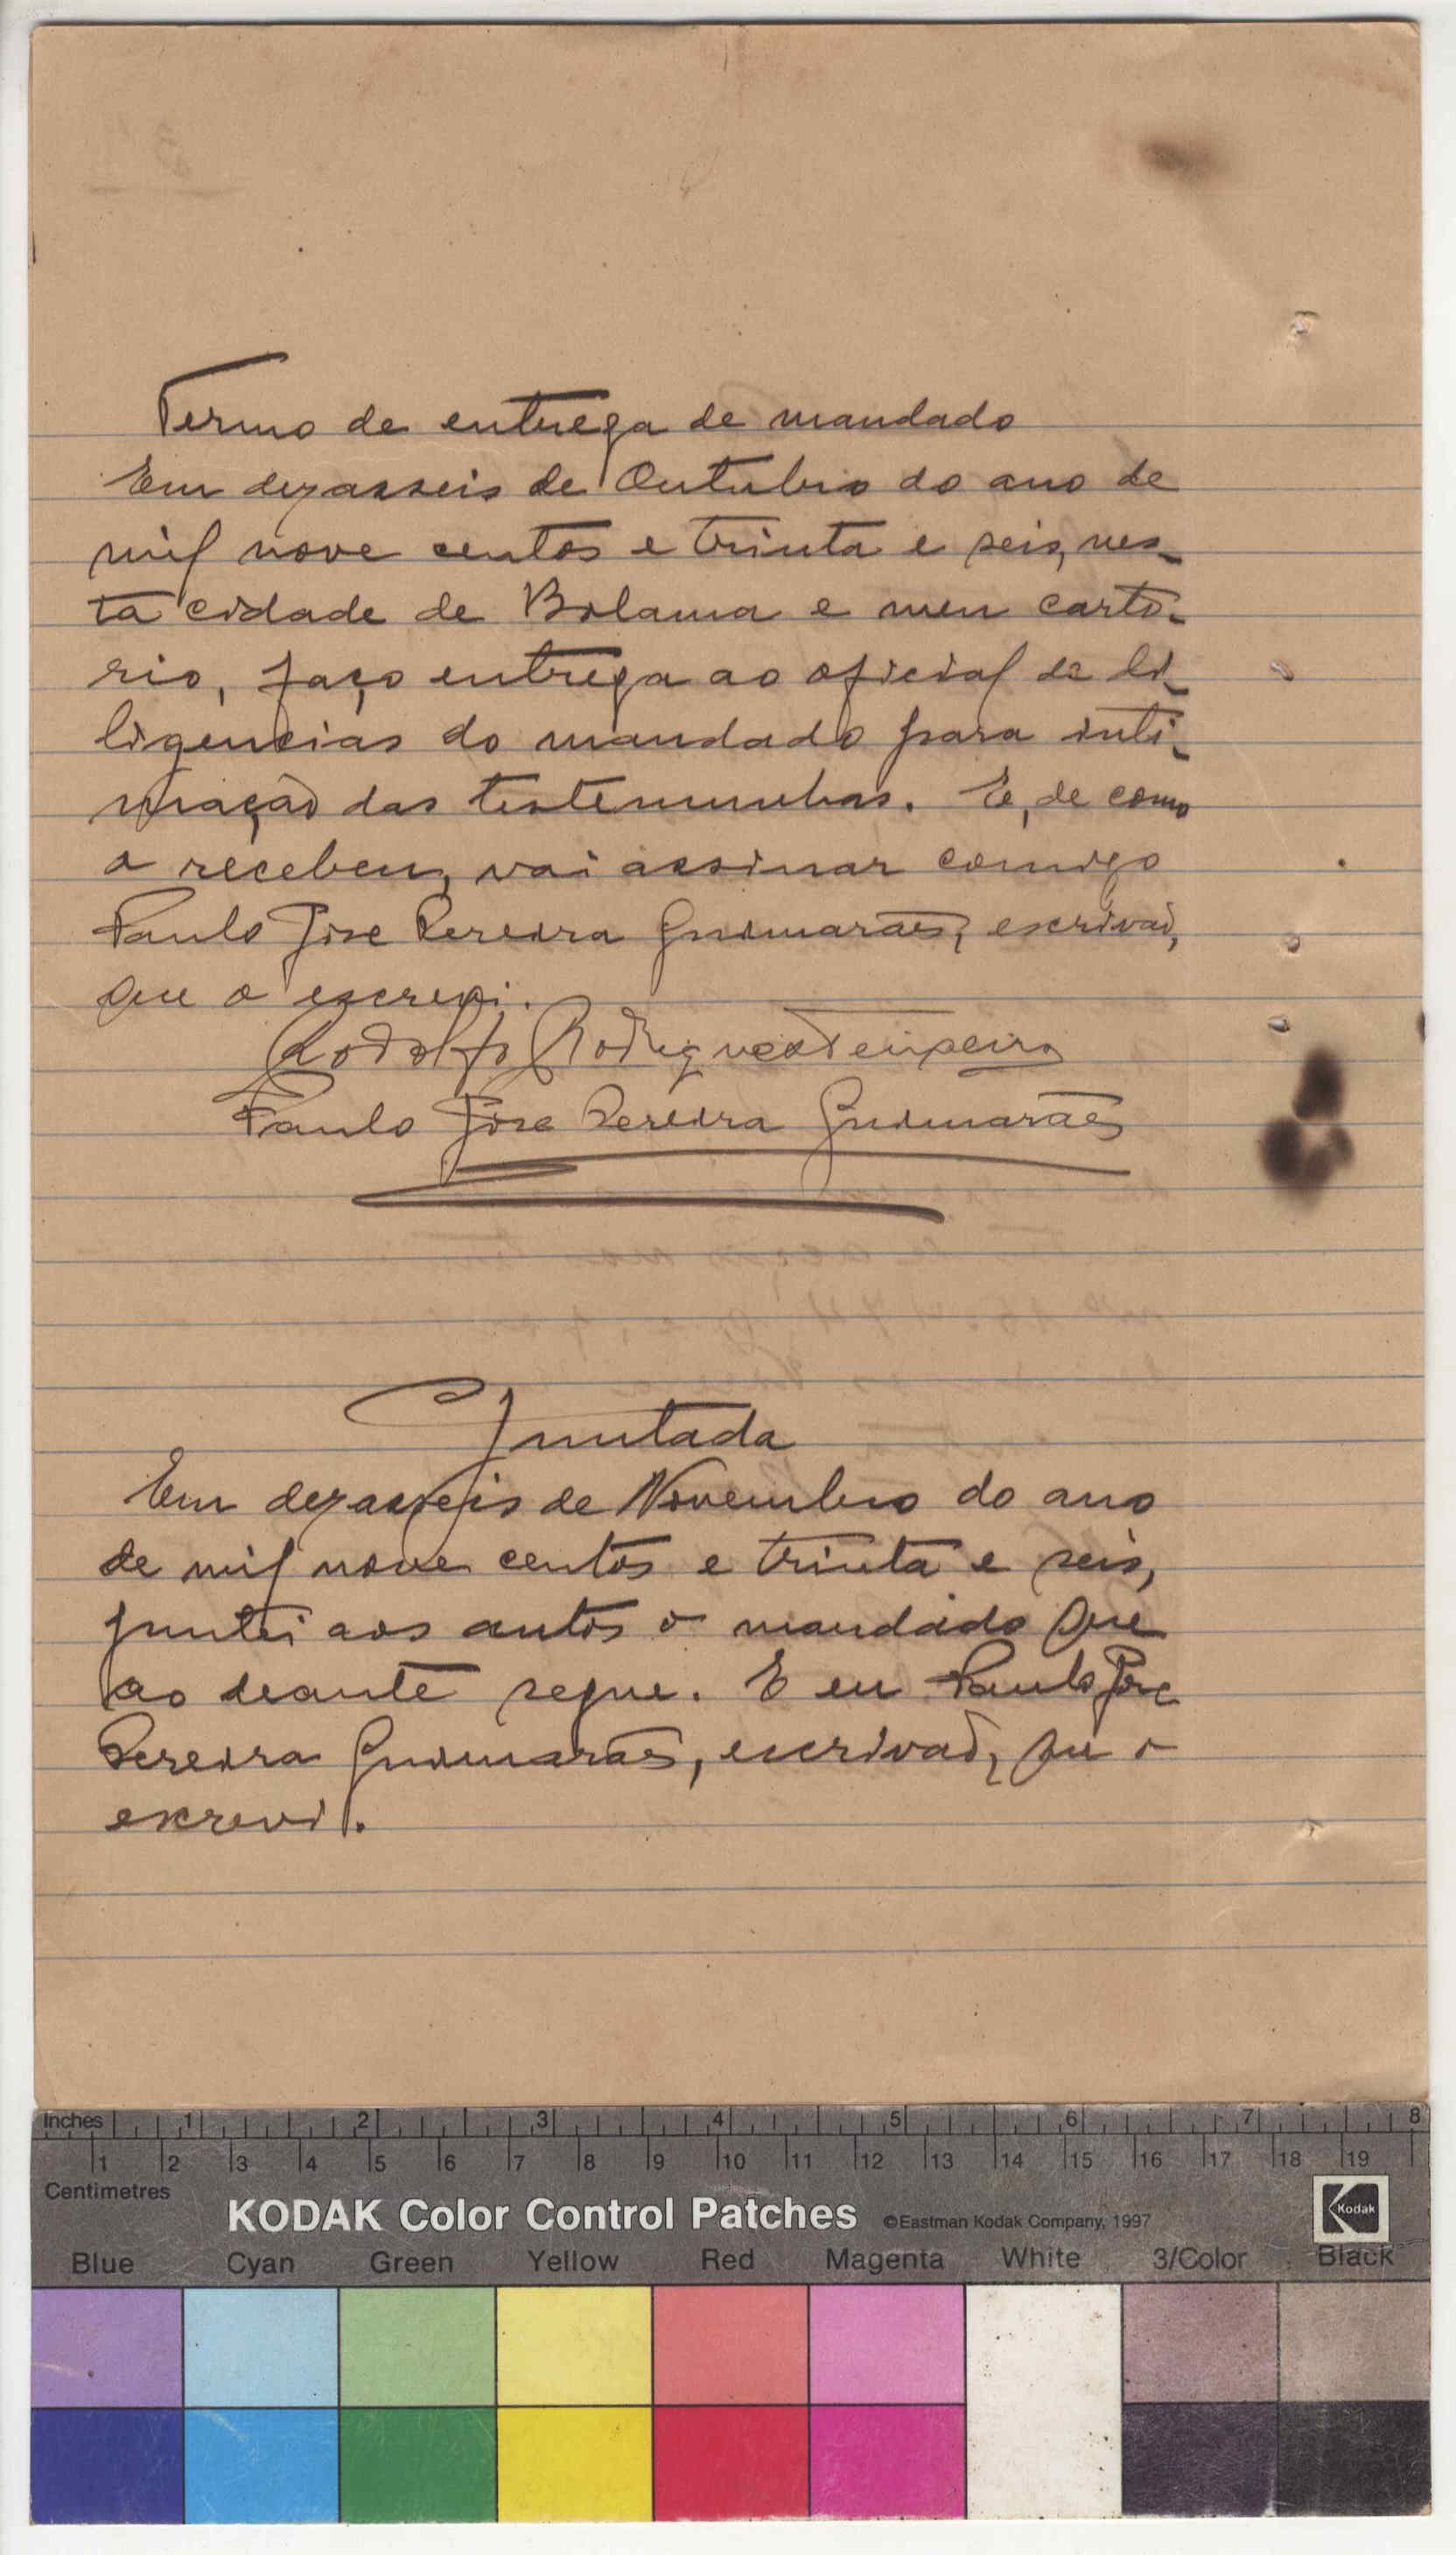 Termo de entrega de mandado
Em dezasseis de Outubro do ano de
mil nove centos e trinta e seis, nes-
ta cidade de Bolama e meu carto-
rio, faço entrega ao oficial de di-
ligencias do mandado para inti-
mação das testemunhas. E, de como
o recebeu, vai assinar comigo
Paulo Jose Pereira Guimarães, escrivão,
que o escrevi.
Rodolfo Rodrigues Teixeira
Paulo Jose Pereira Guimarães
Juntada
Em dezasseis de Novembro do ano
de mil nove centos e trinta e seis,
juntei aos autos o mandado que
ao deante segue. E eu Paulo Jose
Pereira Guimarães, escrivão, que o
escrevi.
Inches 1 2 3 4 5 6 7 8
1 2 3 4 5 6 7 8 9 10 11 12 13 14 15 16 17 18 19
Centimetres
KODAK Color Control Patches ©Eastman Kodak Company, 1997 Kodak
Blue Cyan Green Yellow Red Magenta White 3/Color Black